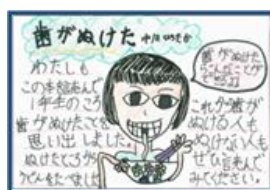 歯がぬけた
わたしも
この本を読んで
1年生のころ
歯がぬけたことを
思い出しました。
ぬけたところから
うどんをたべました
歯がぬけた
これから歯が
ぬける人も
ぬけない人も
ぜひ読んで
みてください。